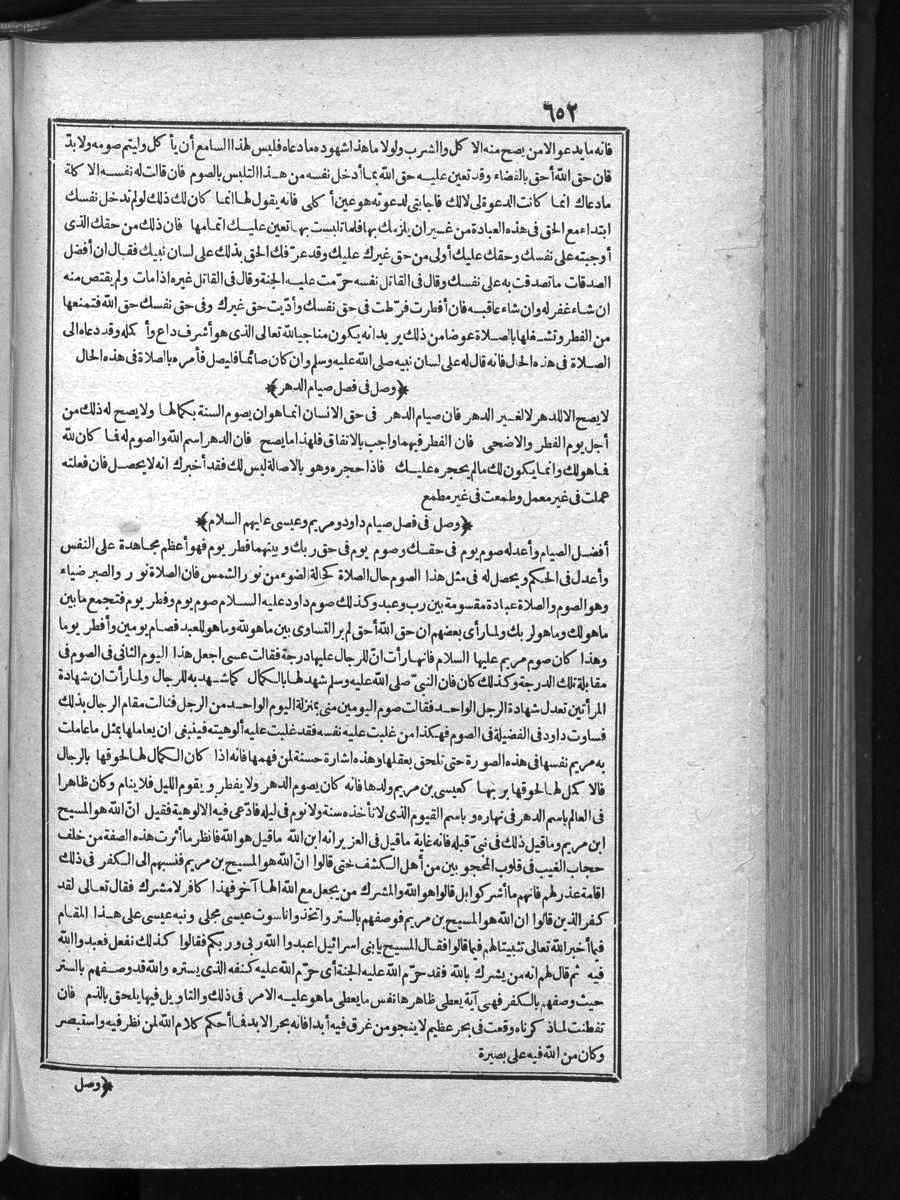 ٦٥٢
فانه ما يدعو الا من يصح منه الا كل والشرب ولولا ما هذا شهوده ما دعاه فليس لهذا السامع أن يأ كل وليتم صومه ولا بدّ
فان حق الله أحق بالقضاء وقد تعين عليه حق الله بما أدخل نفسه من هذا التلبس بالصوم فان قالت له نفسه الا كلة
ما دعاك انما كانت الدعوة لى لالك فاجابتى لدعوته هو عين أ كلى فانه يقول لها انما كان لك ذلك لو لم تدخل نفسك
ابتداء مع الحق فى هذه العبادة من غير ان يلزمك بها فلما تلبست بها تعين عليك اتمامها فان ذلك من حقك الذى
أوجبته على نفسك وحقك عليك أولى من حق غيرك عليك وقد عرّفك الحق بذلك على لسان نبيك فقال ان أفضل
الصدقات ما تصدقت به على نفسك وقال فى القاتل نفسه حرّمت عليه الجنة وقال فى القاتل غيره اذا مات ولم يقتص منه
ان شاء غفر له وان شاء عاقبه فان أفطرت فرّطت فى حق نفسك وأدّيت حق غيرك وفى حق نفسك حق الله فتمنعها
من الفطر وتشغلها بالصلاة عوضا من ذلك يريد انه يكون مناجيا لله تعالى الذى هو أشرف داع وأ كمله وقد دعاه الى
الصلاة فى هذه الحال فانه قال له على لسان نبيه صلى الله عليه وسلم وان كان صائما فليصل فأمره بالصلاة فى هذه الحال
﴿وصل فى فصل صيام الدهر﴾
لا يصح الا للدهر لا لغير الدهر فان صيام الدهر فى حق الانسان انما هو ان يصوم السنة بكمالها ولا يصح له ذلك من
أجل يوم الفطر والاضحى فان الفطر فيهما واجب بالاتفاق فلهذا ما يصح فان الدهر اسم الله والصوم له فما كان لله
فما هو لك وانما يكون لك ما لم يحجره عليك فاذا حجره وهو بالاصالة ليس لك فقد أخبرك انه لا يحصل فان فعلته
عملت فى غير معمل وطمعت فى غير مطمع
﴿وصل فى فصل صيام داود ومريم وعيسى عليهم السلام﴾
أفضل الصيام وأعدله صوم يوم فى حقك وصوم يوم فى حق ربك و بينهما فطر يوم فهو أعظم مجاهدة على النفس
وأعدل فى الحكم و يحصل له فى مثل هذا الصوم حال الصلاة كحالة الضوء من نور الشمس فان الصلاة نور والصبر ضياء
وهو الصوم والصلاة عبادة مقسومة بين رب وعبد وكذلك صوم داود عليه السلام صوم يوم وفطر يوم فتجمع ما بين
ما هو لك وما هو لربك ولما رأى بعضهم ان حق الله أحق لم ير التساوى بين ما هو لله وما هو للعبد فصام يومين وأفطر يوما
وهذا كان صوم مريم عليها السلام فانها رأت انّ للرجال عليها درجة فقالت عسى اجعل هذا اليوم الثانى فى الصوم فى
مقابلة تلك الدرجة وكذلك كان فان النبىّ صلى الله عليه وسلم شهد لها بالكمال كما شهد به للرجال ولما رأت ان شهادة
المرأتين تعدل شهادة الرجل الواحد فقالت صوم اليومين منى بمنزلة اليوم الواحد من الرجل فنالت مقام الرجال بذلك
فساوت داود فى الفضيلة فى الصوم فهكذا من غلبت عليه نفسه فقد غلبت عليه ألوهيته فينبغى ان يعاملها بمثل ما عاملت
به مريم نفسها فى هذه الصورة حتى تلحق بعقلها وهذه اشارة حسنة لمن فهمها فانه اذا كان الكمال لها لحوقها بالرجال
فالا كمل لها لحوقها بربها كعيسى بن مريم ولدها فانه كان يصوم الدهر ولا يفطر و يقوم الليل فلا ينام وكان ظاهرا
فى العالم باسم الدهر فى نهاره و باسم القيوم الذى لا تأخذه سنة ولا نوم فى ليله فادّعى فيه الالوهية فقيل انّ الله هو المسيح
ابن مريم وما قيل ذلك فى نبىّ قبله فانه غاية ما قيل فى العزير انه ابن الله ما قيل هو الله فانظر ما أثرت هذه الصفة من خلف
حجاب الغيب فى قلوب المحجو بين من أهل الكشف حتى قالوا انّ الله هو المسيح بن مريم فنسبهم الى الكفر فى ذلك
اقامة عذر لهم فانهم ما أشركوا بل قالوا هو الله والمشرك من يجعل مع الله الها آخر فهذا كافر لا مشرك فقال تعالى لقد
كفر الذين قالوا ان الله هو المسيح بن مريم فوصفهم بالستر واتخذوا ناسوت عيسى مجلى ونبه عيسى على هذا المقام
فيما أخبر الله تعالى تثبيتا لهم فيما قالوا فقال المسيح يا بنى اسرائيل اعبدوا الله ربى وربكم فقالوا كذلك نفعل فعبدوا الله
فيه ثم قال لهم انه من يشرك بالله فقد حرّم الله عليه الجنة أى حرّم الله عليه كنفه الذى يستره والله قد وصفهم بالستر
حيث وصفهم بالكفر فهى آية يعطى ظاهرها نفس ما يعطى ما هو عليه الامر فى ذلك والتاو يل فيها يلحق بالذم فان
تفطنت لما ذ كرناه وقعت فى بحر عظيم لا ينجو من غرق فيه أبدا فانه بحر الابد فما أحكم كلام الله لمن نظر فيه واستبصر
وكان من الله فيه على بصيرة
﴿وصل